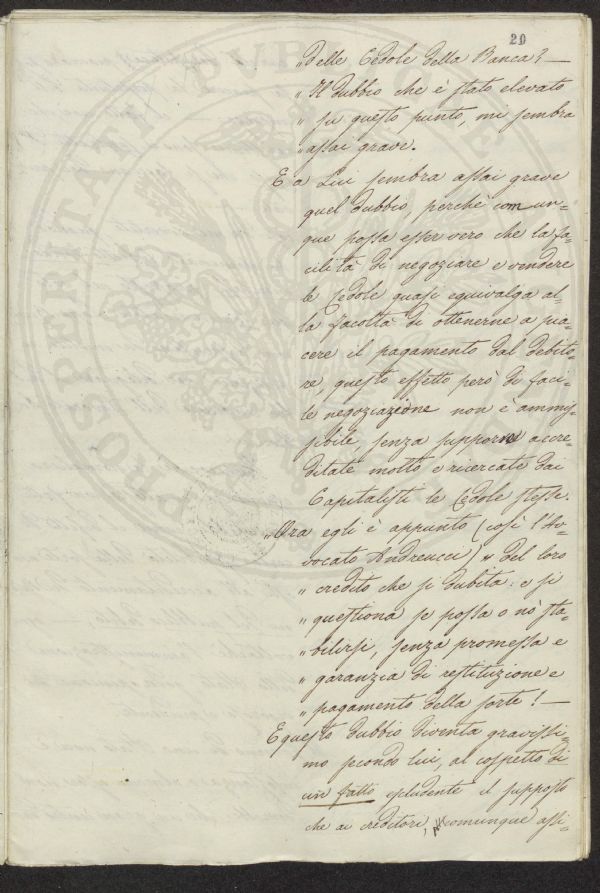 20
„ Delle Cedole della Banca? —
„ Il dubbio che è stato elevato
„ su questo punto, mi sembra
„ assai grave.
E a Lui sembra assai grave
quel dubbio, perchè comun-
que possa esser vero che la fa-
cilità di negoziare e vendere
le Cedole quasi equivalga al-
la facoltà di ottenerne a pia-
cere il pagamento dal debito-
re, questo effetto però di faci-
le negoziazione non è ammis-
sibile, senza supporne accre-
ditate molto e ricercate dai
Capitalisti le Cedole stesse.
„Ora egli è appunto (così l'Av-
vocato Andreucci) „ del loro
„ credito che si dubita: e si
„ questiona se possa o nò sta-
„ bilirsi, senza promessa e
„ garanzia di restituzione e
„ pagamento della sorte! —
E questo dubbio diventa gravissi-
mo secondo lui, al cospetto di
un fatto escludente il supposto
che ai creditori, comunque assi-
PROSPERITATI PUBLICAE